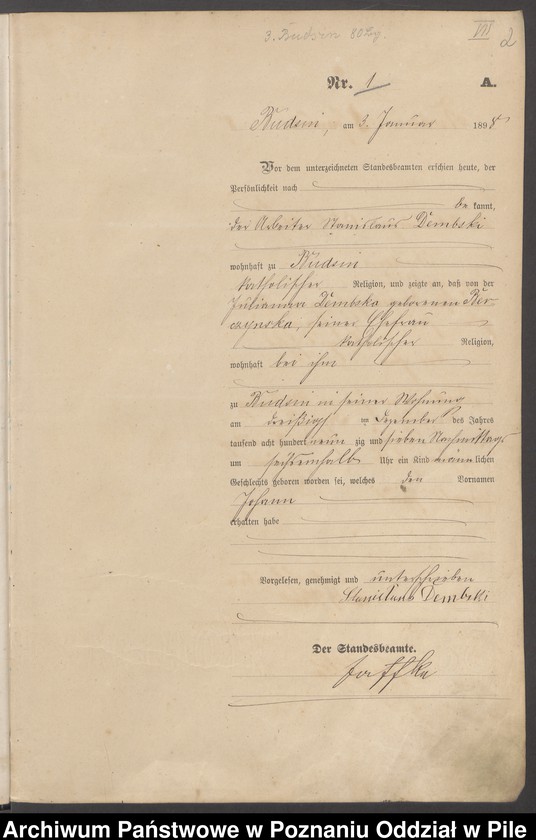 3. Budsin
VII
2
Nr. 1 A.
Budsin, am 3. Januar 1898
Vor dem unterzeichneten Standesbeamten erschien heute, der
Persönlichkeit nach
be kannt,
der Arbeiter Stanislaus Dembski
wohnhaft zu Budsin
katholischer Religion, und zeigte an, daß von der
Julianna Dembska geborenen
seiner Ehefrau
katholischer Religion,
wohnhaft bei ihm
zu Budsin in seiner Wohnung
am dreißigsten Dezember des Jahres
tausend acht hundert neun zig und sieben Nachmittags
um Uhr ein Kind männlichen
Geschlechts geboren worden sei, welches den Vornamen
Johann
erhalten habe
Vorgelesen, genehmigt und unterschrieben
Stanislaus Dembski
Der Standesbeamte.
Archiwum Państwowe w Poznaniu Oddział w Pile